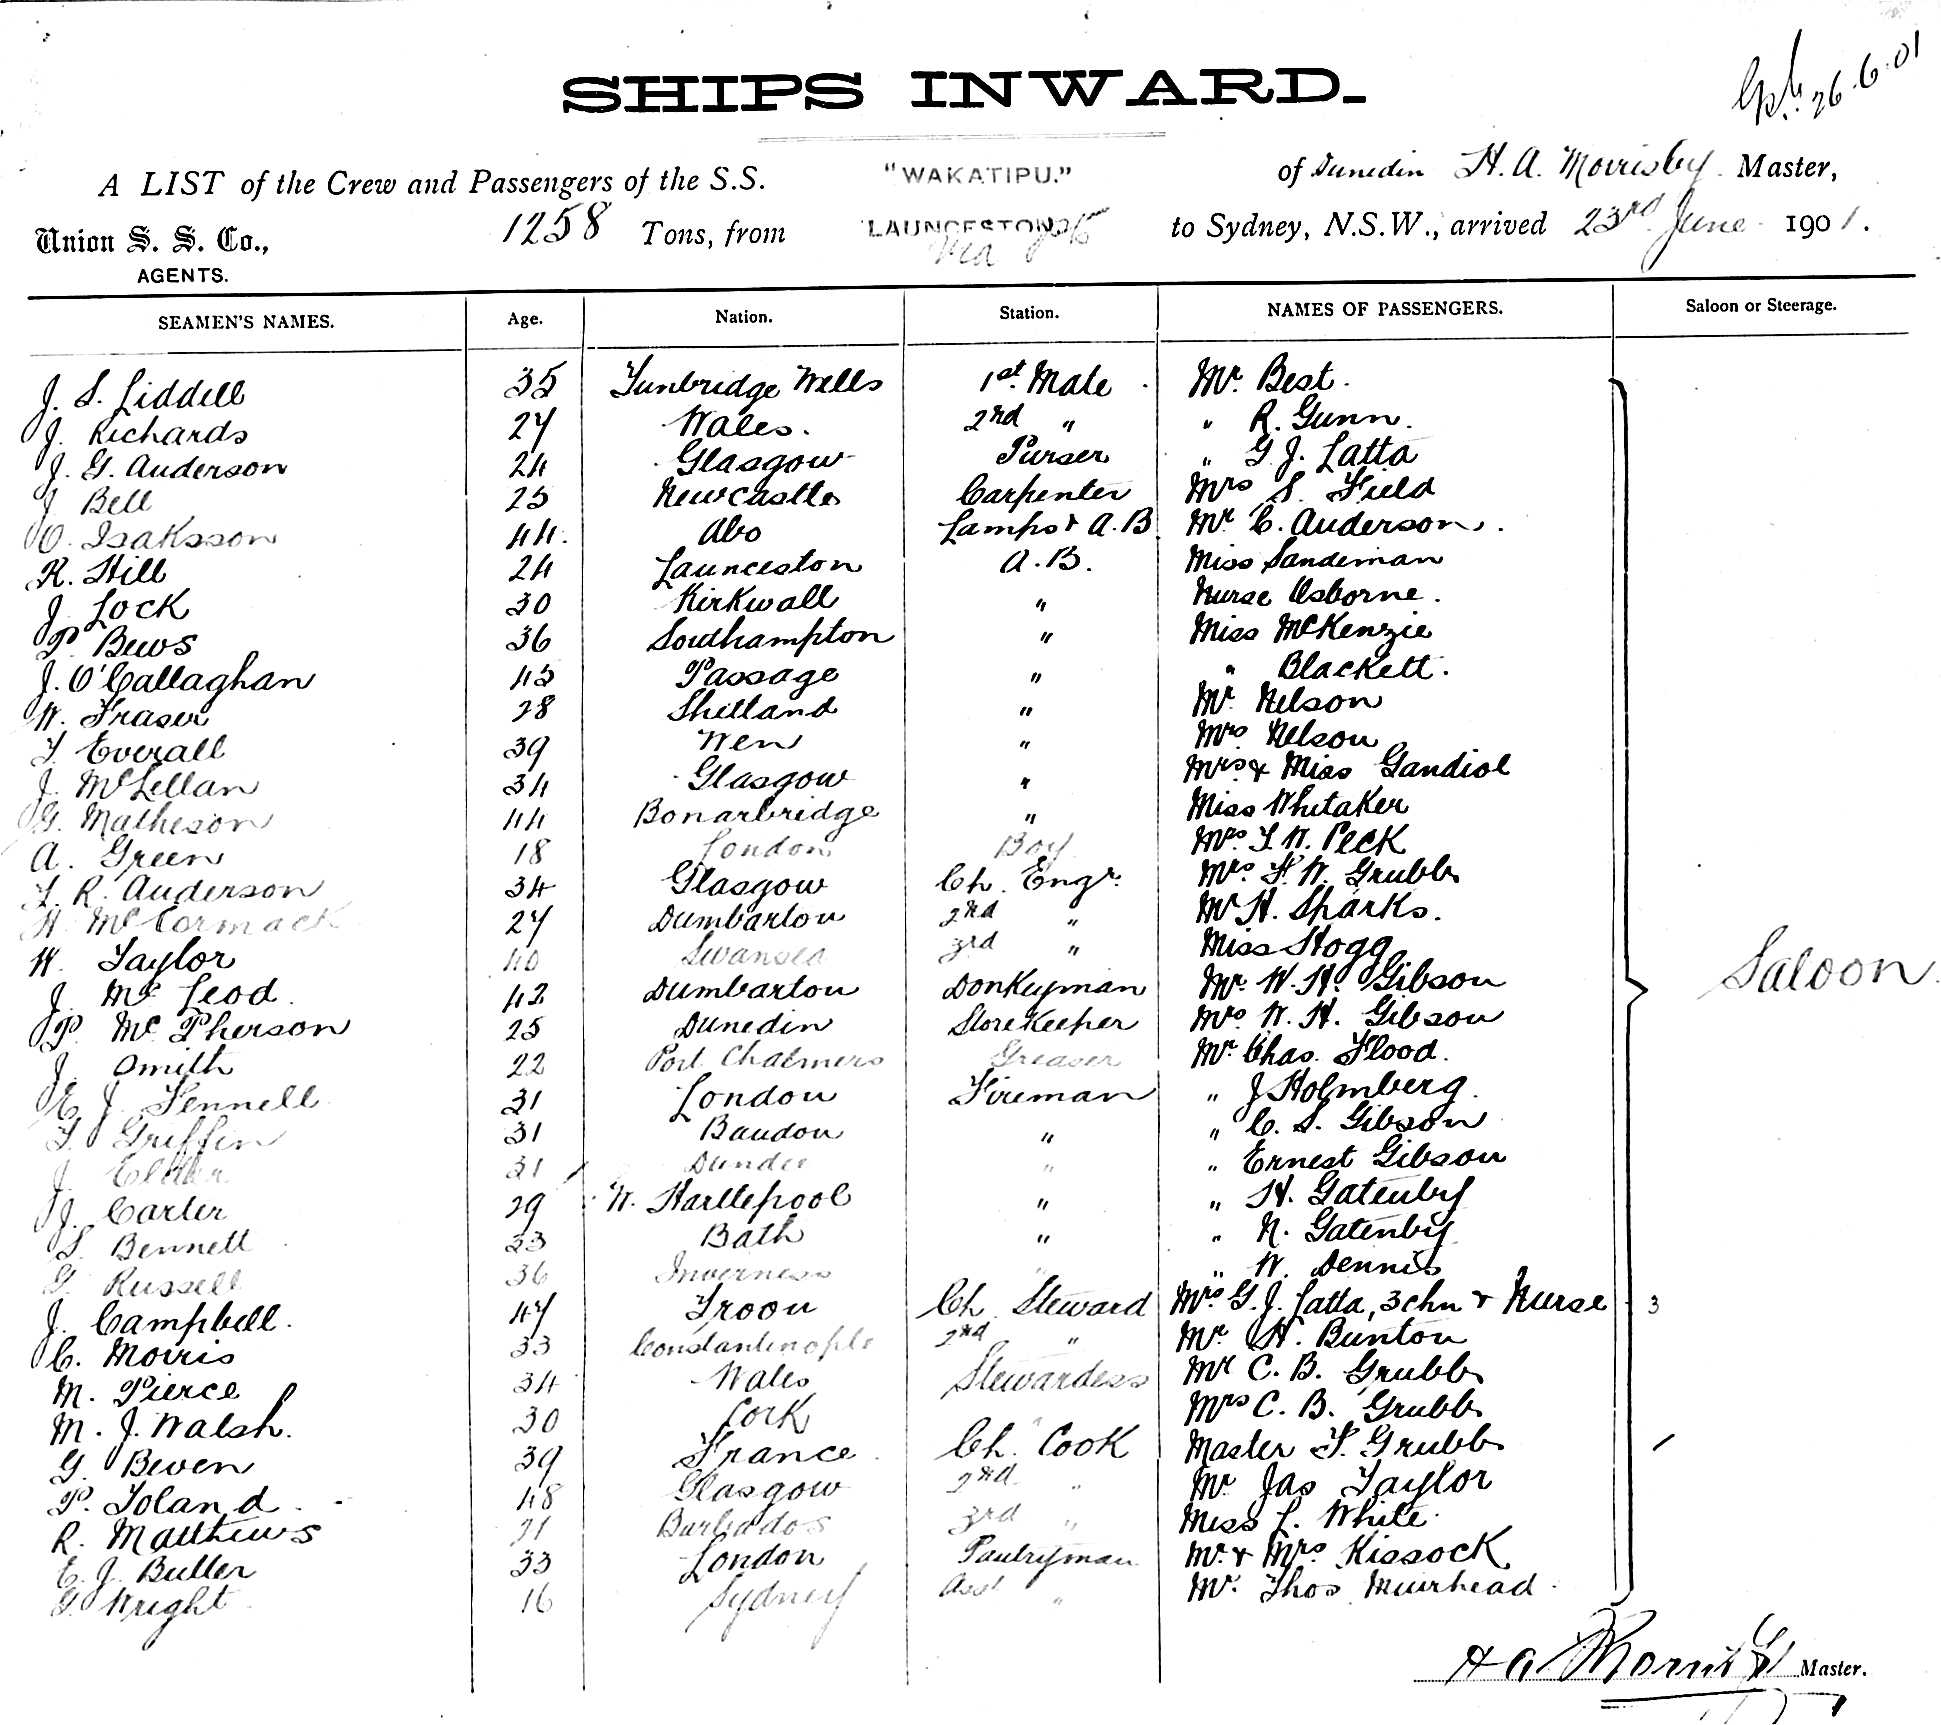 26.6.01
SHIPS INWARD.
A LIST of the Crew and Passengers of the S.S. "WAKATIPU." of Dunedin H. A. Morrisby Master,
Union S. S. Co., 1258 Tons, from LAUNCESTON to Sydney, N.S.W., arrived 23rd June 1901.
Via
AGENTS.
SEAMEN'S NAMES. Age. Nation. Station. NAMES OF PASSENGERS. Saloon or Steerage.
J. S. Liddell 35 Tunbridge Wells 1st Mate Mr. Best.
J. Richards 27 Wales. 2nd " " R. Gunn.
J. G. Anderson 24 Glasgow Purser " G. J. Latta
J Bell 25 Newcastle Carpenter Mrs S. Field
O. Isaksson 44. Abo Lamps & A.B. Mr C. Anderson.
R. Hill 24 Launceston A.B. Miss Sandeman
J. Lock 30 Kirkwall " Nurse Osborne.
P. Bews 36 Southampton " Miss McKenzie
J. O'Callaghan 45 Passage " " Blackett.
W. Fraser 28 Shetland " Mr. Nelson
T. Everall 39 Wen " Mrs. Nelson
J. McLellan 34 Glasgow " Mrs. & Miss Gandiol
G. Matheson 44 Bonarbridge " Miss Whitaker
A. Green 18 London Boy Mrs. T. W. Peck
T. R. Anderson 34 Glasgow Ch. Engr. Mrs. F. W. Grubb
H McCormack 27 Dumbarton 2nd " Mr H. Sparks.
W. Taylor 40 Swansea 3rd " Miss Hogg
J. McLeod. 42 Dumbarton Donkeyman Mr. W. H. Gibson
P. McPherson 25 Dunedin Storekeeper Mrs. W. H. Gibson
J. Smith 22 Port Chalmers Greaser Mr. Chas. Flood.
E. J. Fennell 31 London Fireman " J Holmberg.
T. Griffin 31 Baudon " " C. S. Gibson
J. 31 Dundee " " Ernest Gibson
J. Carter 29 W. Hartlepool " " H. Gatenby
S. Bennett 33 Bath " " N. Gatenby
G. Russell 36 Inverness " " W. Dennis
J. Campbell. 47 Troon Ch. Steward Mrs. G. J. Latta, 3 chn & Nurse 3
C. Morris 33 Constantinople 2nd " Mr. H. Bunton
M. Pierce 34 Wales Stewardess Mr C. B. Grubb
M. J. Walsh. 30 Cork " Mrs C. B. Grubb
G. Beven 39 France Ch. Cook Master F. Grubb
P. Toland 48 Glasgow 2nd " Mr Jas Taylor
R. Matthews 21 Barbados 3rd " Miss L. White
E. J. Butler 33 London Pantryman Mr. & Mrs. Kissock
G. Wright 16 Sydney Asst " Mr. Thos. Muirhead
Saloon
H A Morrisby Master.